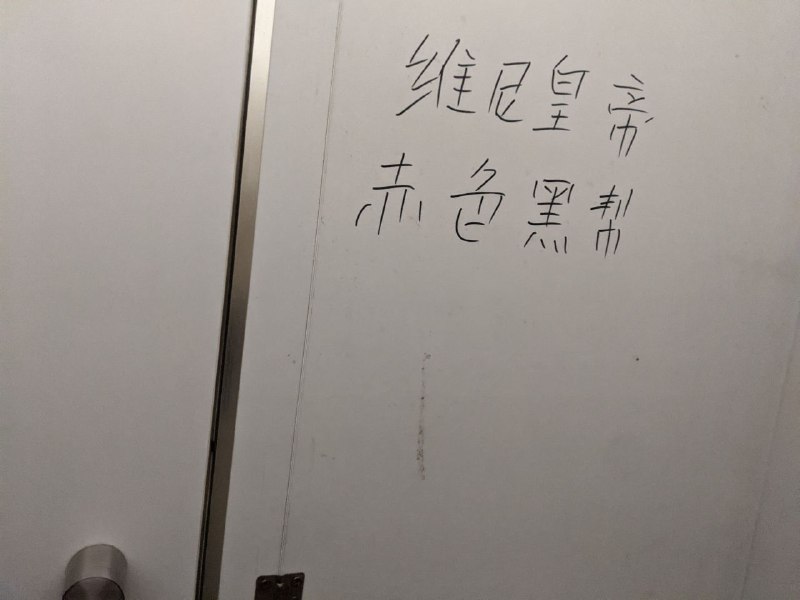 维尼皇帝
赤色黑帮